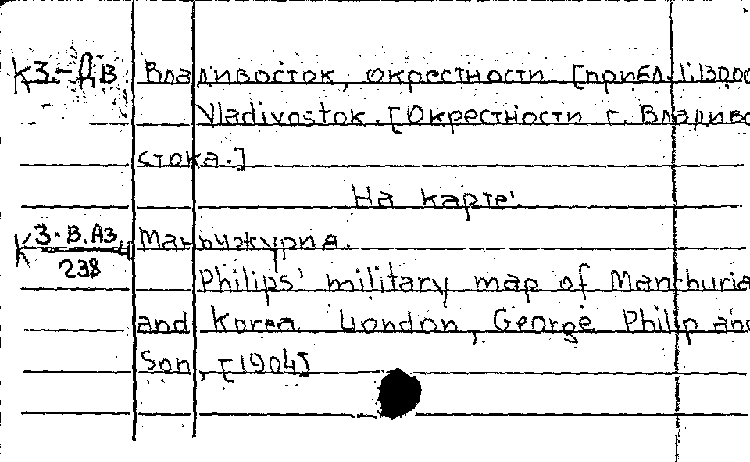 К3.-ДВ Владивосток, окрестности [прибл. 1:130.00
Vladivostok. [Окрестности г. Владиво
стока.]
На карте:
К 3.-В.Аз. Маньчжурия.
238
Philips' military map of Manchuria
and Korea London, George Philip and
Son, [1904]